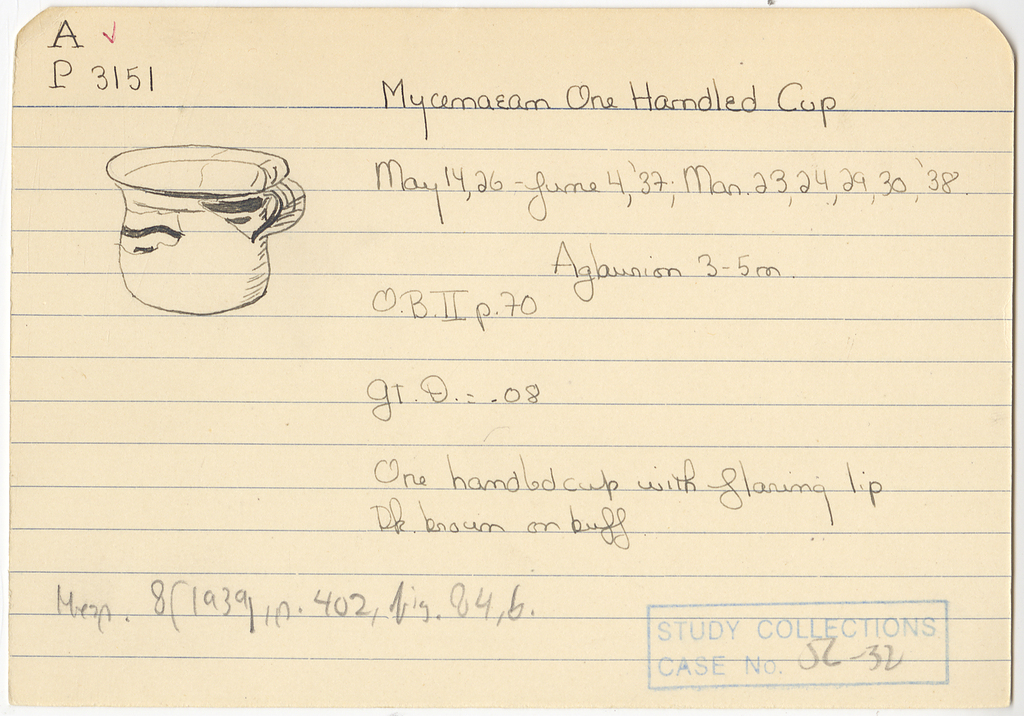 A ✓
P 3151
Mycenaean One Handled Cup
May 14, 26 - June 4, '37; Mar. 23, 24, 29, 30, '38.
Aglaurion 3-5m.
O.B. II p. 70
gt. D. = .08
One handled cup with flaring lip
Dk. brown on buff
8 (1939), p. 402, fig. 84, b.
STUDY COLLECTIONS
CASE No. SZ-32